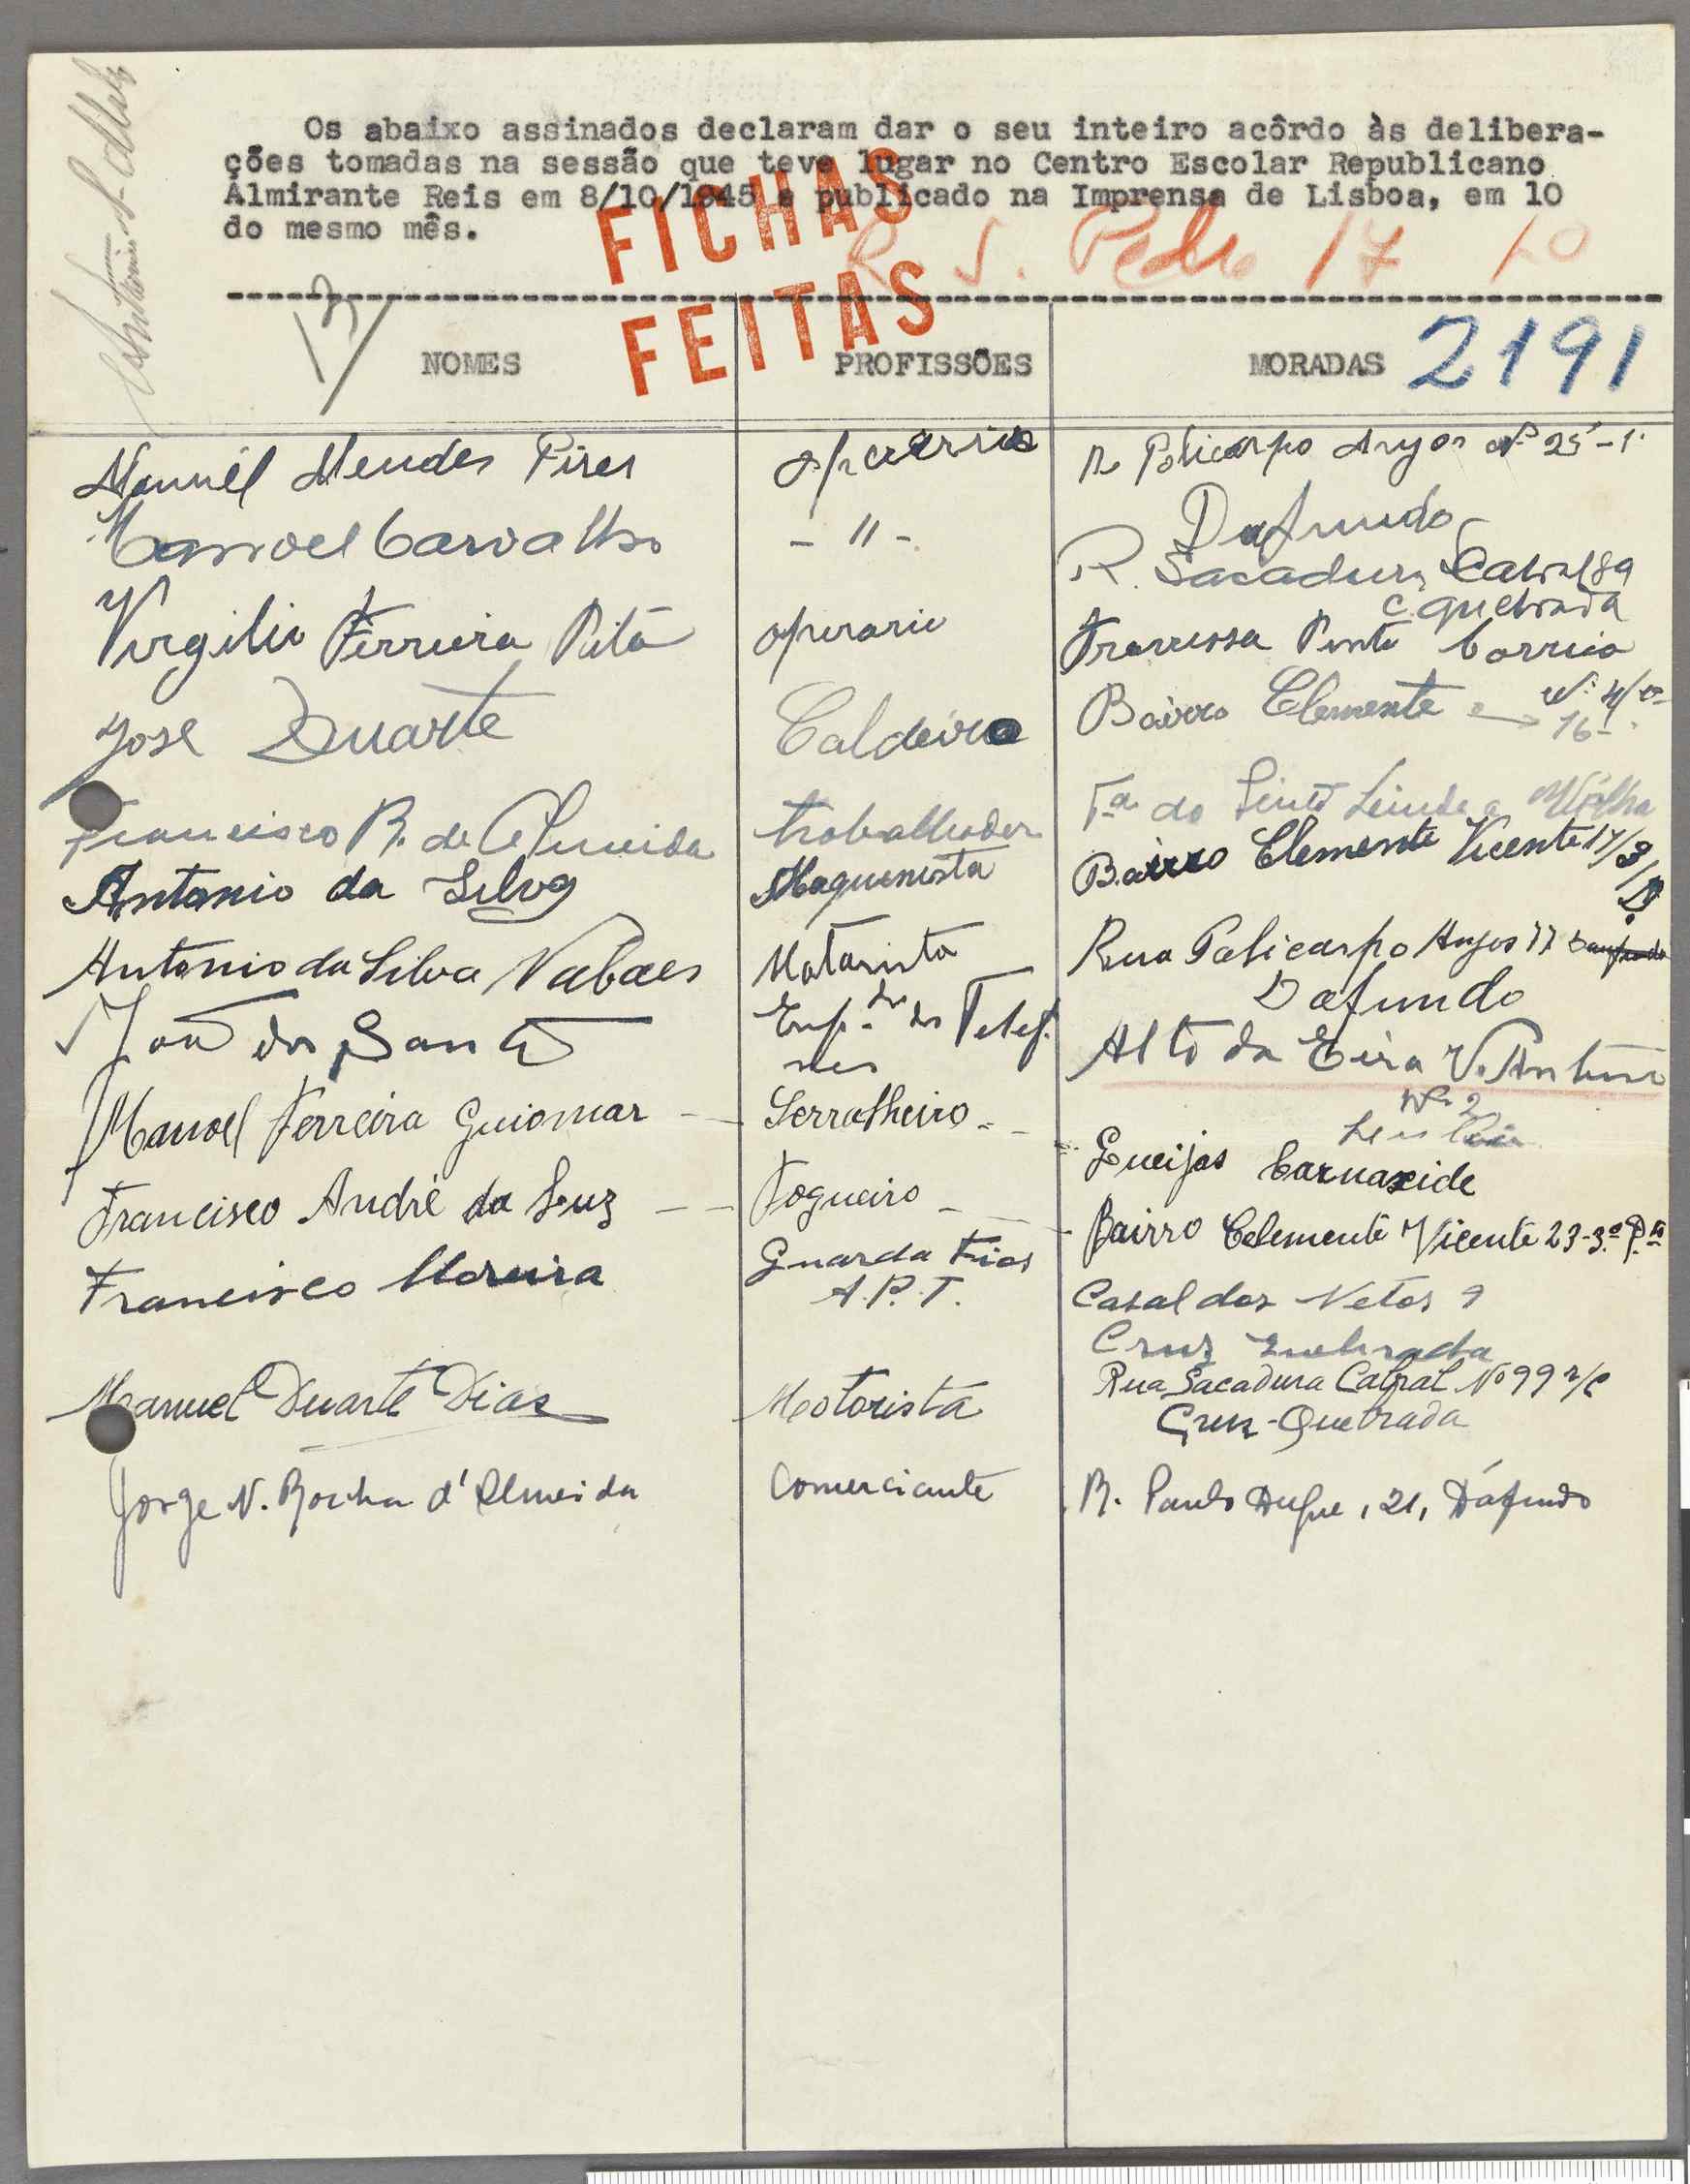 Os abaixo assinados declaram dar o seu inteiro acôrdo às delibera-
ções tomadas na sessão que teve lugar no Centro Escolar Republicano
Almirante Reis em 8/10/1945 e publicado na Imprensa de Lisboa, em 10
do mesmo mês.
FICHAS
FEITAS
13
2191
NOMES PROFISSÕES MORADAS
Manuél Mendes Pires operário R Policarpo Anjos Nº 25-1º
Dafundo
Manoel Carvalho - " - R. Sacadura Cabral 89
C. Quebrada
Virgilio Ferreira Pitá operario Travessa Pinto Correia
José Duarte Caldeiro Bairro Clemente
16
Francisco R. de Almeida trabalhador Linda a Velha
Antonio da Silva Maquenista Bairro Clemente Vicente 17/3/D.
Antonio da Silva Nabaes Motorista Rua Policarpo Anjos 77
Dafundo
João dos Santos Emp. dos Telef. Alto da Eira V. Antunes
nes Nº 2
Manoel Ferreira Guiomar - - Serralheiro - - Queijas Carnaxide
Francisco André da Luz - - Fogueiro - Bairro Celemente Vicente 23-3.º
Francisco Moreira Guarda Fios Casal dos Netos 9
A.P.T. Cruz Quebrada
Manuel Duarte Dias Motorista Rua Sacadura Cabral Nº 99 r/c
Cruz-Quebrada
Jorge N. Rocha d'Almeida Comerciante R. Paulo Duque, 21, Dáfundo